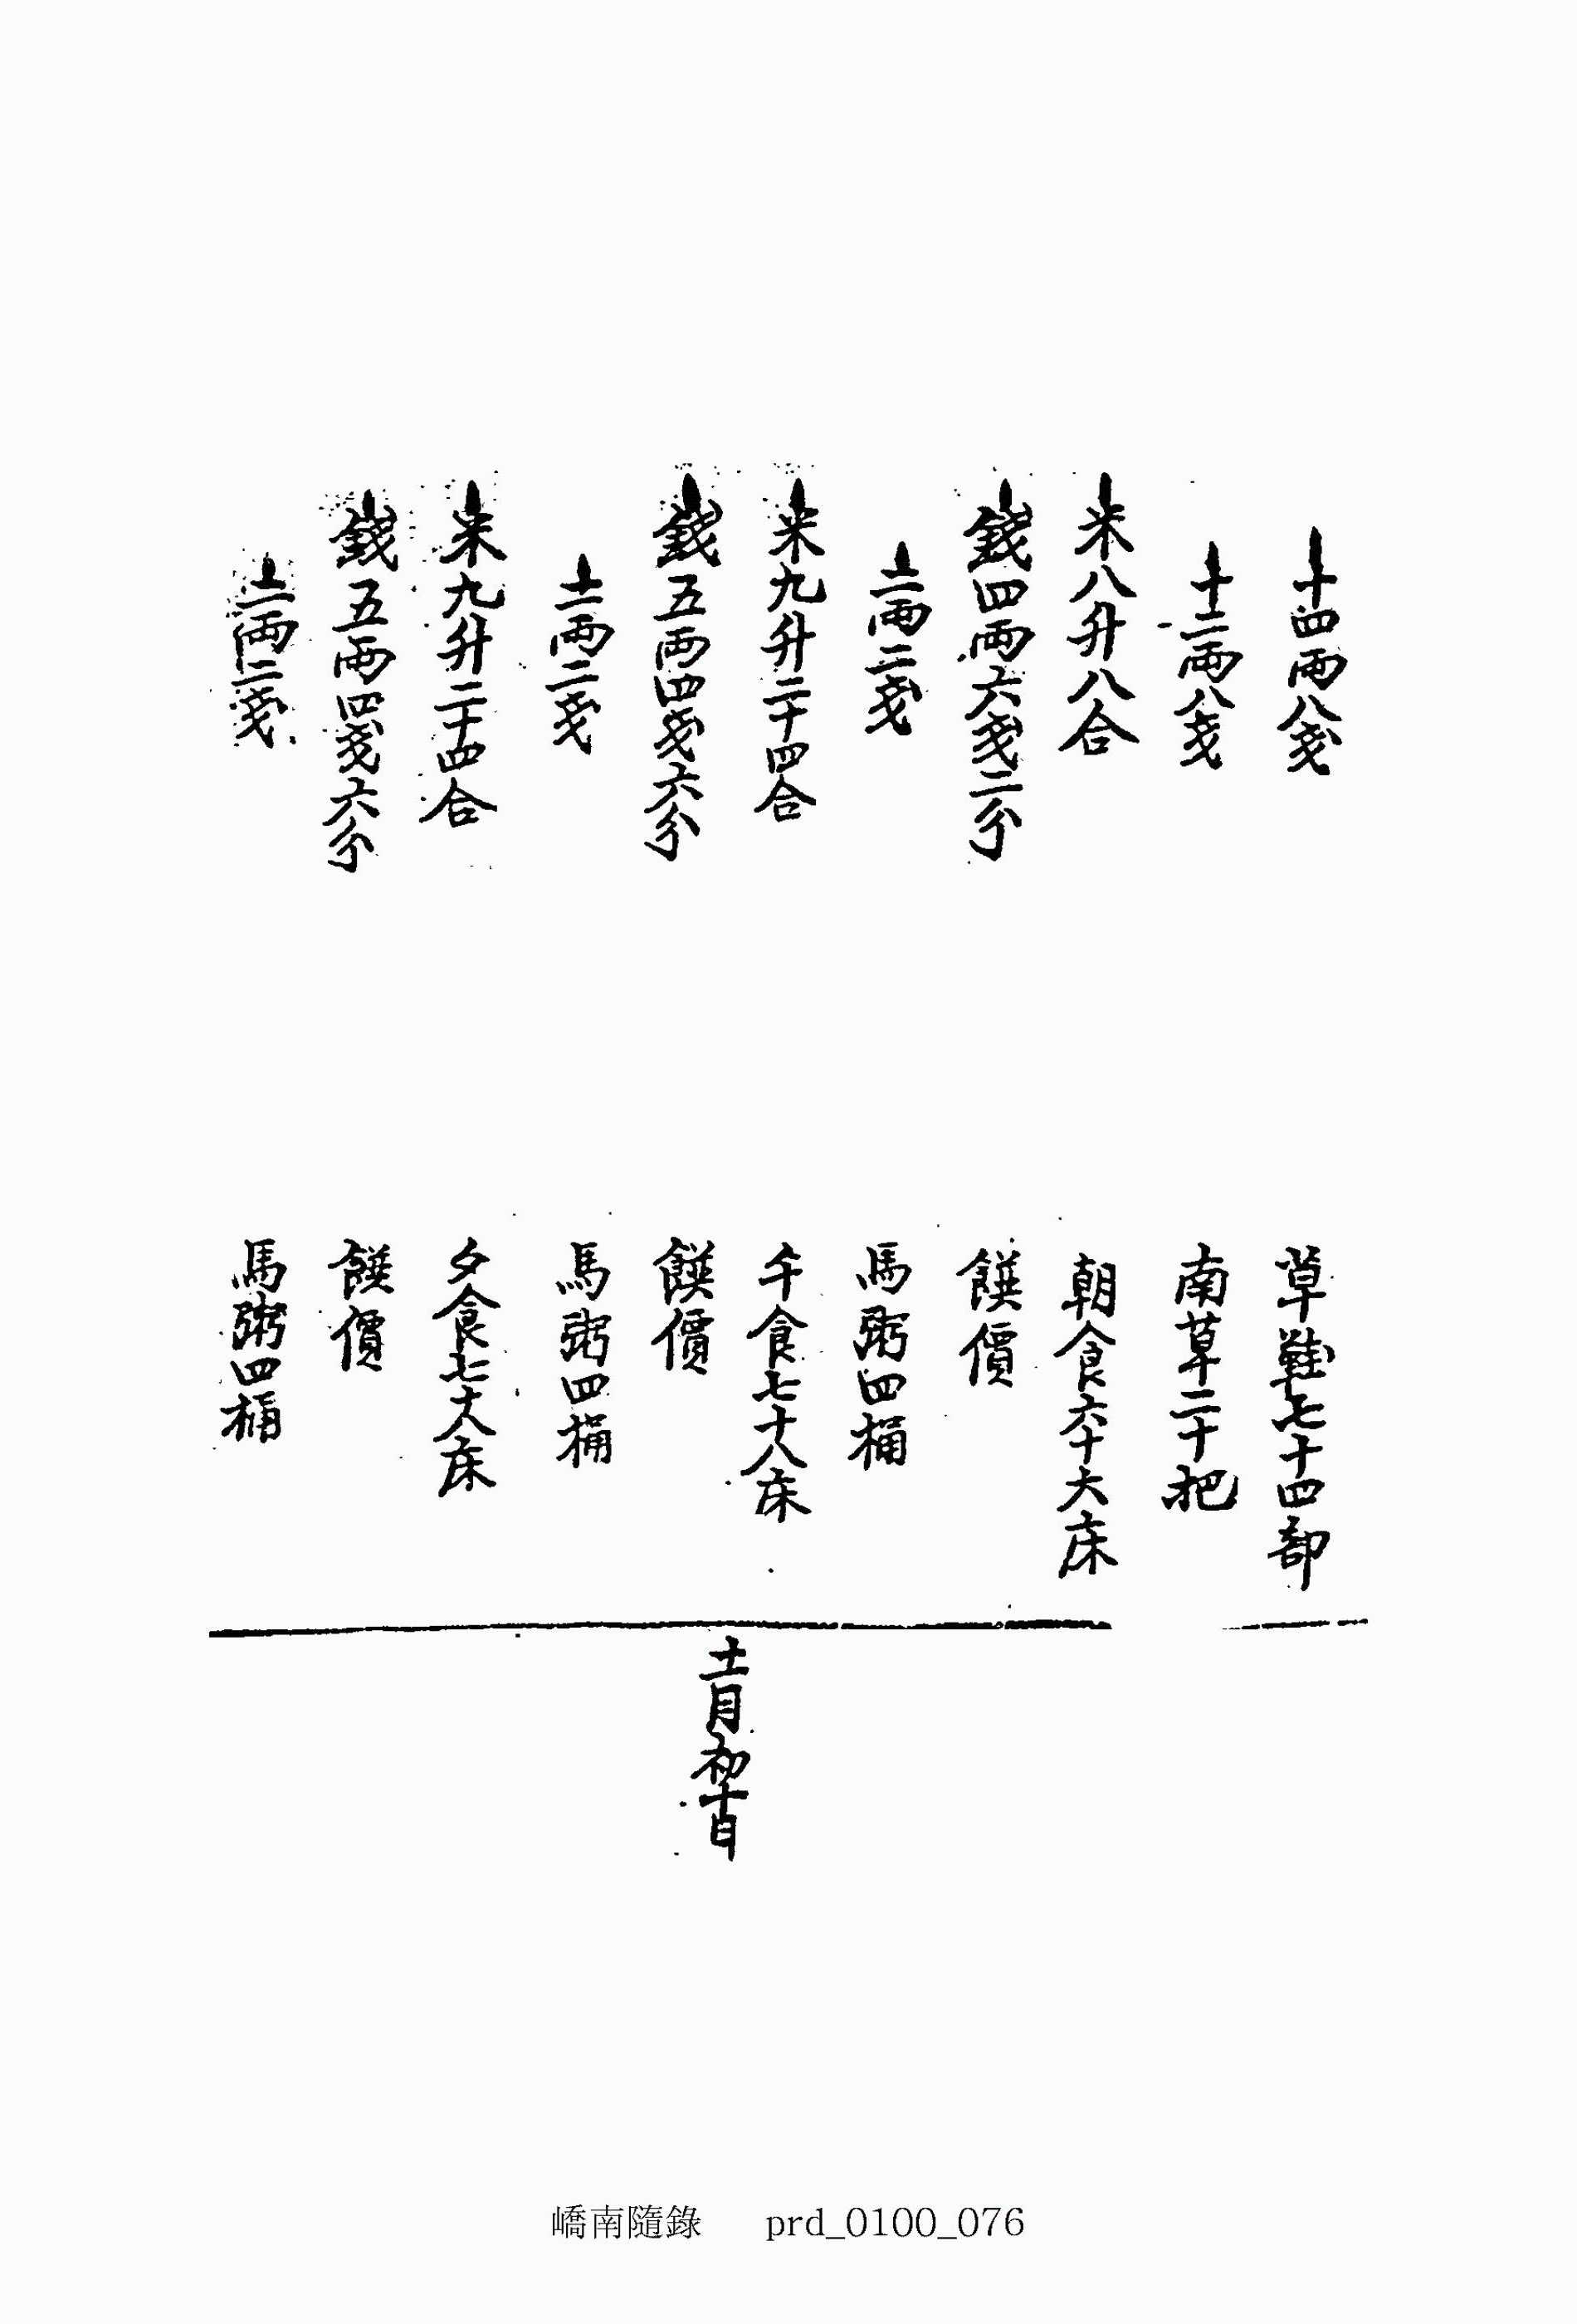 十四兩八戔 草鞋七十四部
十二兩八戔 南草二十把
米八升八合 朝食六十六床
錢四兩六戔二分 饌價
二兩二戔 馬粥四桶
米九升二十四合 午食七十八床
錢五兩四戔六分 饌價
二兩二戔 馬粥四桶
米九升二十四合 夕食七十八床
錢五兩四戔六分 饌價
二兩二戔 馬粥四桶
十一月初十日
嶠南隨錄 prd_0100_076